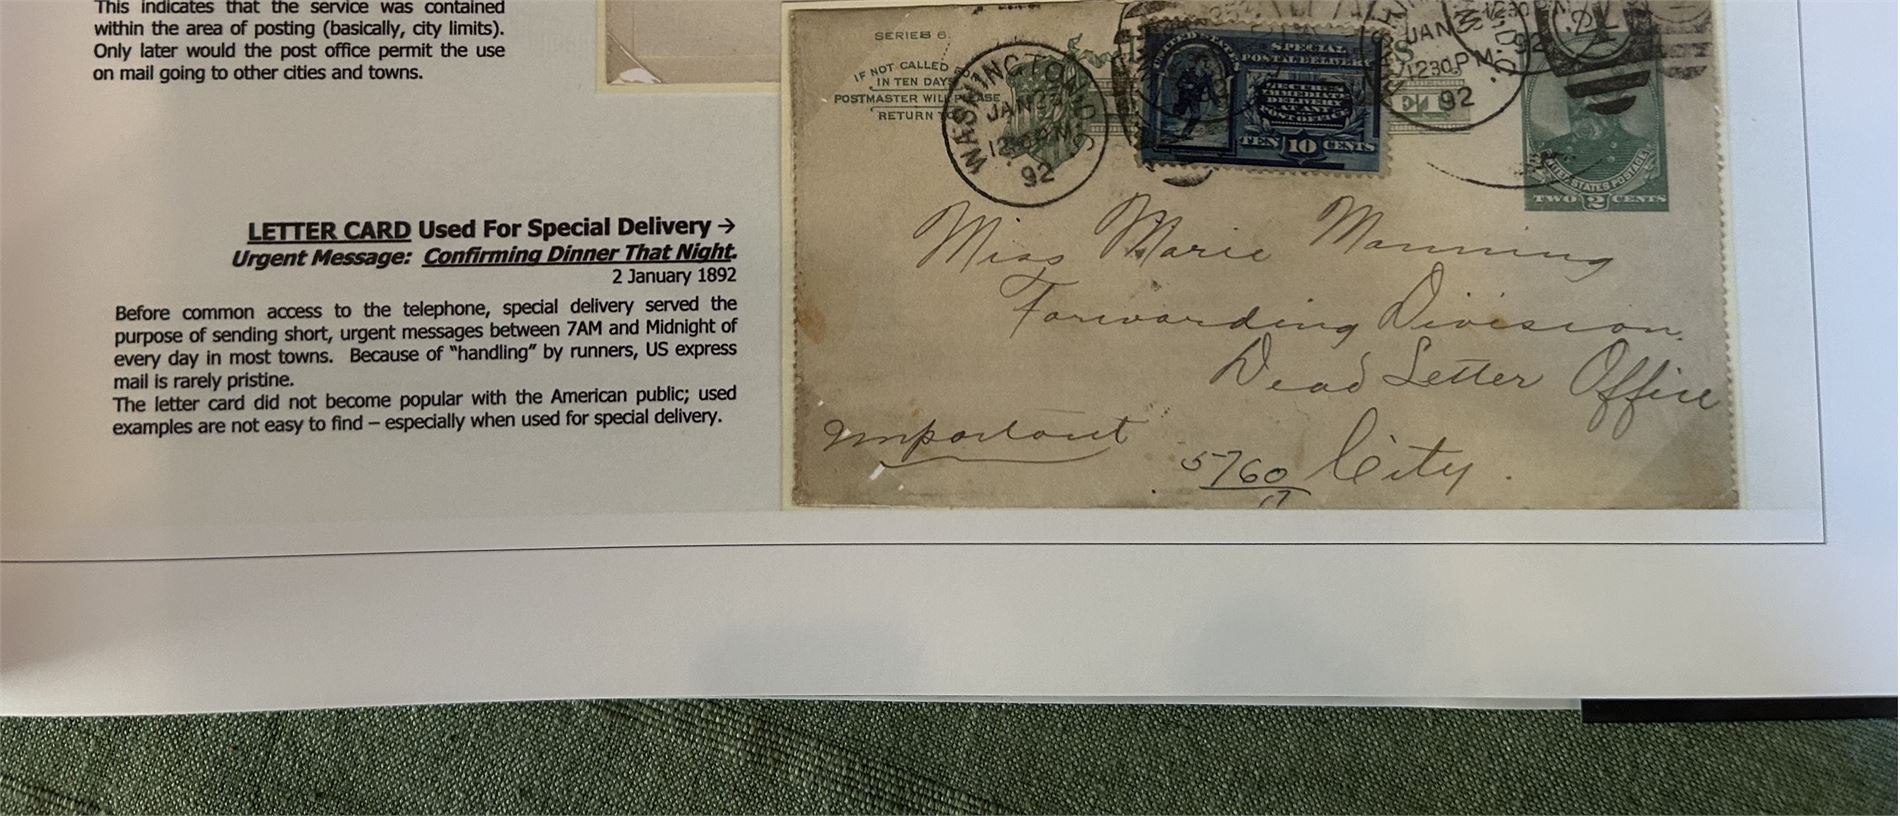 This indicates that the service was contained
within the area of posting (basically, city limits).
Only later would the post office permit the use
on mail going to other cities and towns.
LETTER CARD Used For Special Delivery →
Urgent Message: Confirming Dinner That Night.
2 January 1892
Before common access to the telephone, special delivery served the
purpose of sending short, urgent messages between 7AM and Midnight of
every day in most towns. Because of "handling" by runners, US express
mail is rarely pristine.
The letter card did not become popular with the American public; used
examples are not easy to find – especially when used for special delivery.
SERIES 6.
IF NOT CALLED FOR
IN TEN DAYS
POSTMASTER WILL PLEASE
RETURN TO
WASHINGTON D.C.
JAN 2
1230PM
92
UNITED STATES
SPECIAL
POSTAL DELIVERY
SECURES
IMMEDIATE
DELIVERY
AT ANY
POST OFFICE
TEN 10 CENTS
JAN 2
1230PM
92
UNITED STATES POSTAGE
TWO 2 CENTS
Miss Marie Manning
Forwarding Division.
Dead Letter Office
Important
5760
17
City.